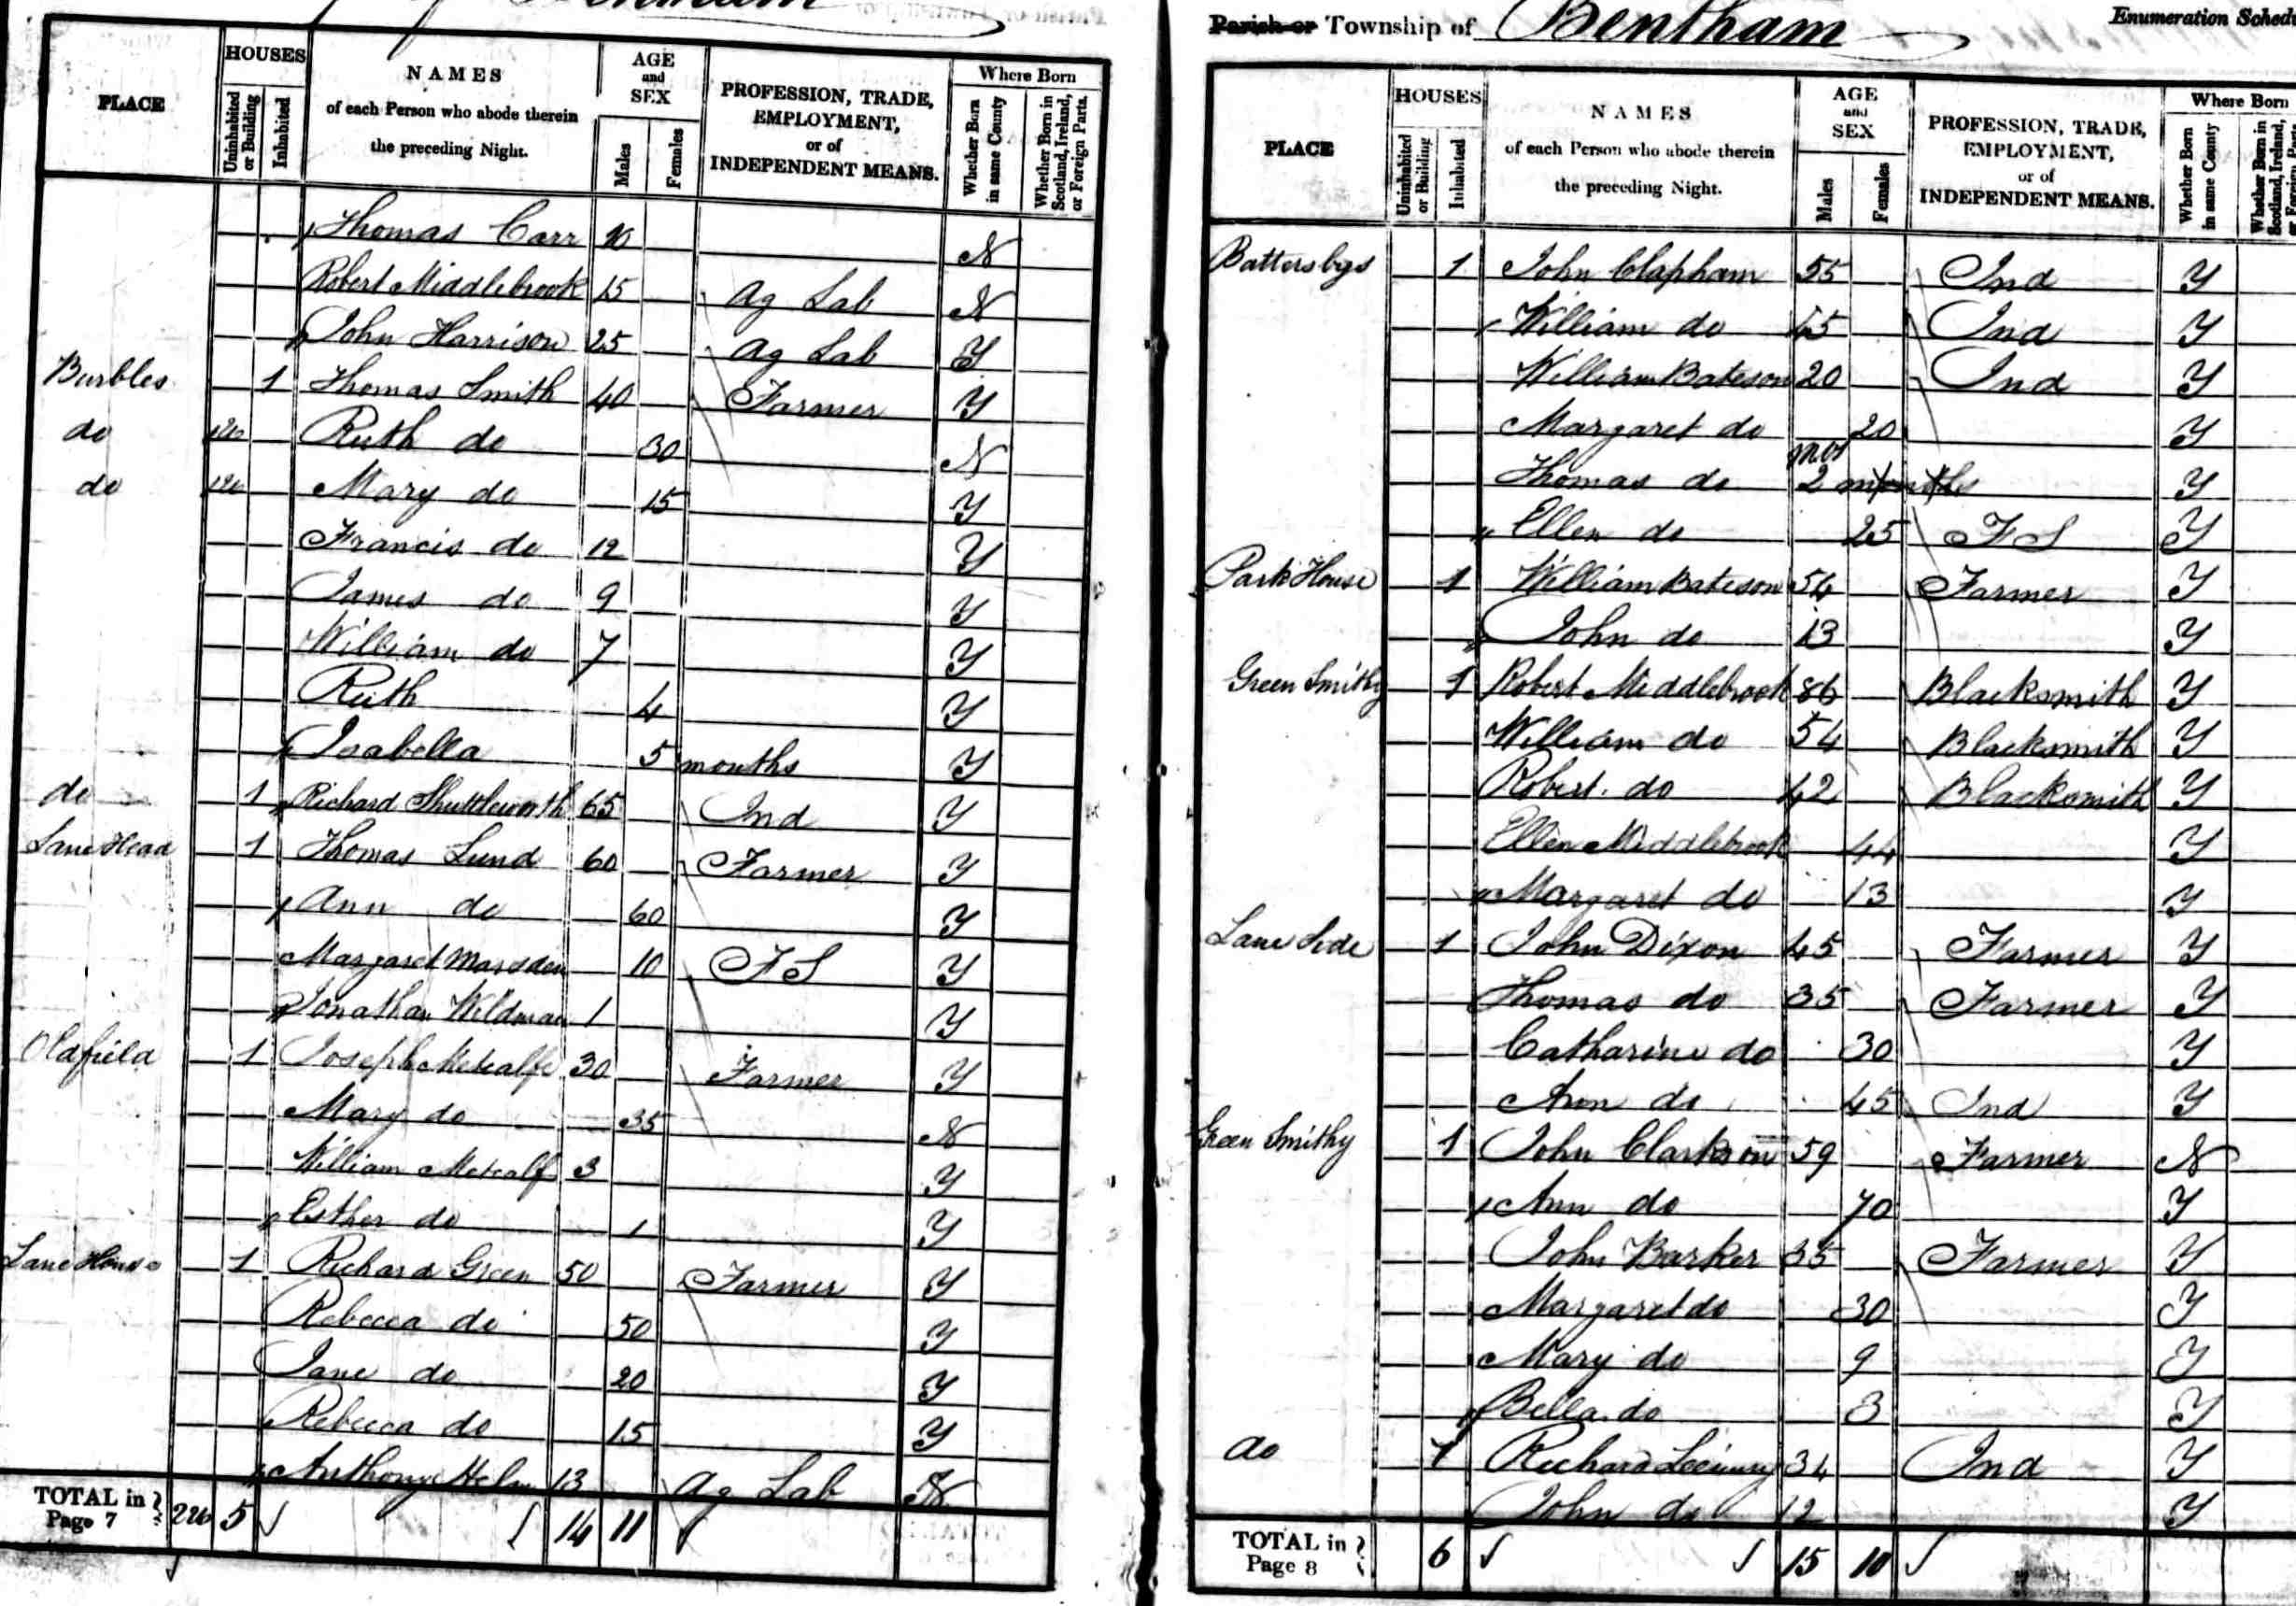 PLACE
HOUSES
Uninhabited or Building
Inhabited
NAMES
of each Person who abode therein
the preceding Night.
AGE
and
SEX
Males
Females
PROFESSION, TRADE,
EMPLOYMENT,
or of
INDEPENDENT MEANS.
Where Born
Whether Born in same County
Whether Born in Scotland, Ireland, or Foreign Parts.
Thomas Carr 10 N
Robert Middlebrook 15 Ag Lab N
John Harrison 25 Ag Lab Y
Burbles 1 Thomas Smith 40 Farmer Y
do 1 Ruth do 30 N
do 1 Mary do 15 Y
Francis do 12 Y
James do 9 Y
William do 7 Y
Ruth 4 Y
Isabella 5 months Y
do 1 Richard Shuttleworth 65 Ind Y
Lane Head 1 Thomas Lund 60 Farmer Y
Ann do 60 Y
Margaret Marsden 10 F S Y
Jonathan Wildman 1 Y
Oldfield 1 Joseph Metcalfe 30 Farmer Y
Mary do 35 N
William Metcalf 3 Y
Esther do 1 Y
Lane House 1 Richard Green 50 Farmer Y
Rebecca do 50 Y
Jane do 20 Y
Rebecca do 15 Y
Anthony Helm 13 Ag Lab N
TOTAL in
Page 7 5 14 11
Parish or Township of Bentham
Enumeration Sched
PLACE
HOUSES
Uninhabited or Building
Inhabited
NAMES
of each Person who abode therein
the preceding Night.
AGE
and
SEX
Males
Females
PROFESSION, TRADE,
EMPLOYMENT,
or of
INDEPENDENT MEANS.
Where Born
Whether Born in same County
Whether Born in Scotland, Ireland, or Foreign Parts
Battersbys 1 John Clapham 55 Ind Y
William do 45 Ind Y
William Bateson 20 Ind Y
Margaret do 20 Y
Thomas do 2 mos months Y
Ellen do 25 F S Y
Park House 1 William Bateson 54 Farmer Y
John do 13 Y
Green Smithy 1 Robert Middlebrook 86 Blacksmith Y
William do 54 Blacksmith Y
Robert do 42 Blacksmith Y
Ellen Middlebrook 44 Y
Margaret do 13 Y
Lane Side 1 John Dixon 45 Farmer Y
Thomas do 35 Farmer Y
Catharine do 30 Y
Ann do 45 Ind Y
Green Smithy 1 John Clarkson 59 Farmer N
Ann do 70 Y
John Barker 35 Farmer Y
Margaret do 30 Y
Mary do 9 Y
Bella do 3 Y
do 1 Richard 34 Ind Y
John do 12 Y
TOTAL in
Page 8 6 15 10